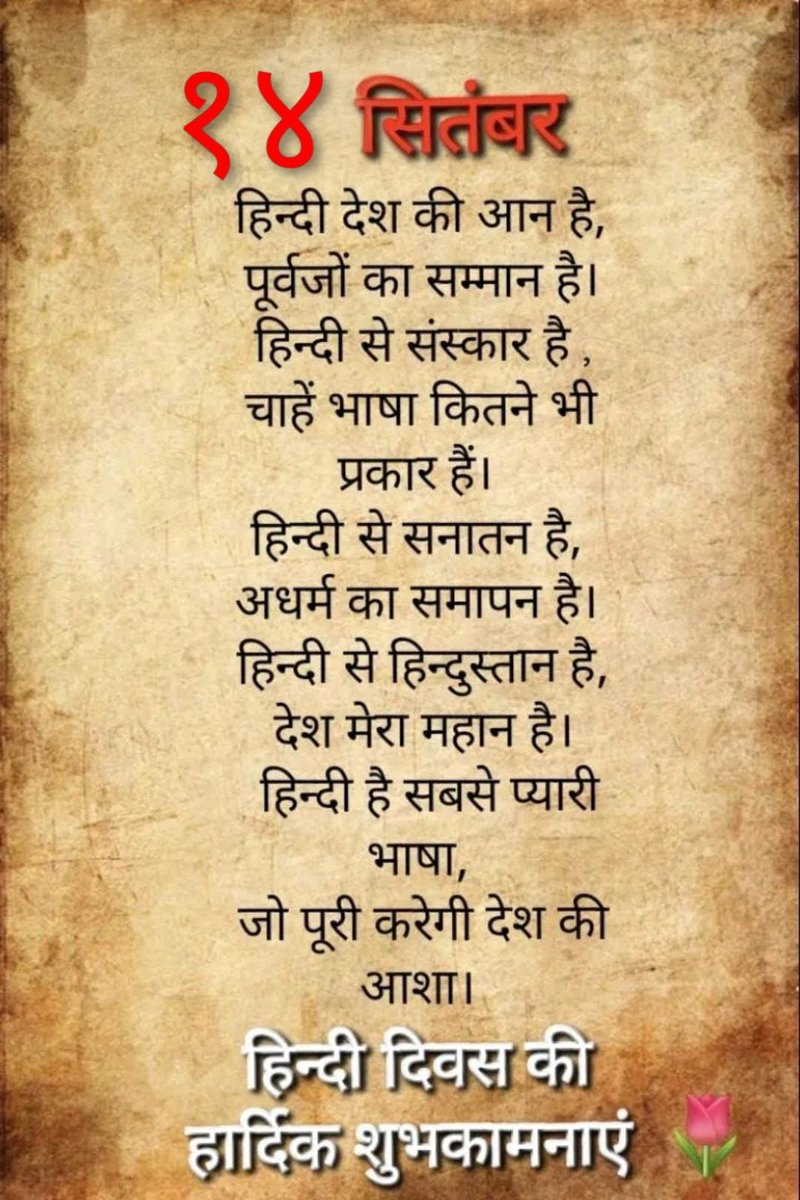 १४ सितंबर
हिन्दी देश की आन है,
पूर्वजों का सम्मान है।
हिन्दी से संस्कार है ,
चाहें भाषा कितने भी
प्रकार हैं।
हिन्दी से सनातन है,
अधर्म का समापन है।
हिन्दी से हिन्दुस्तान है,
देश मेरा महान है।
हिन्दी है सबसे प्यारी
भाषा,
जो पूरी करेगी देश की
आशा।
हिन्दी दिवस की
हार्दिक शुभकामनाएं